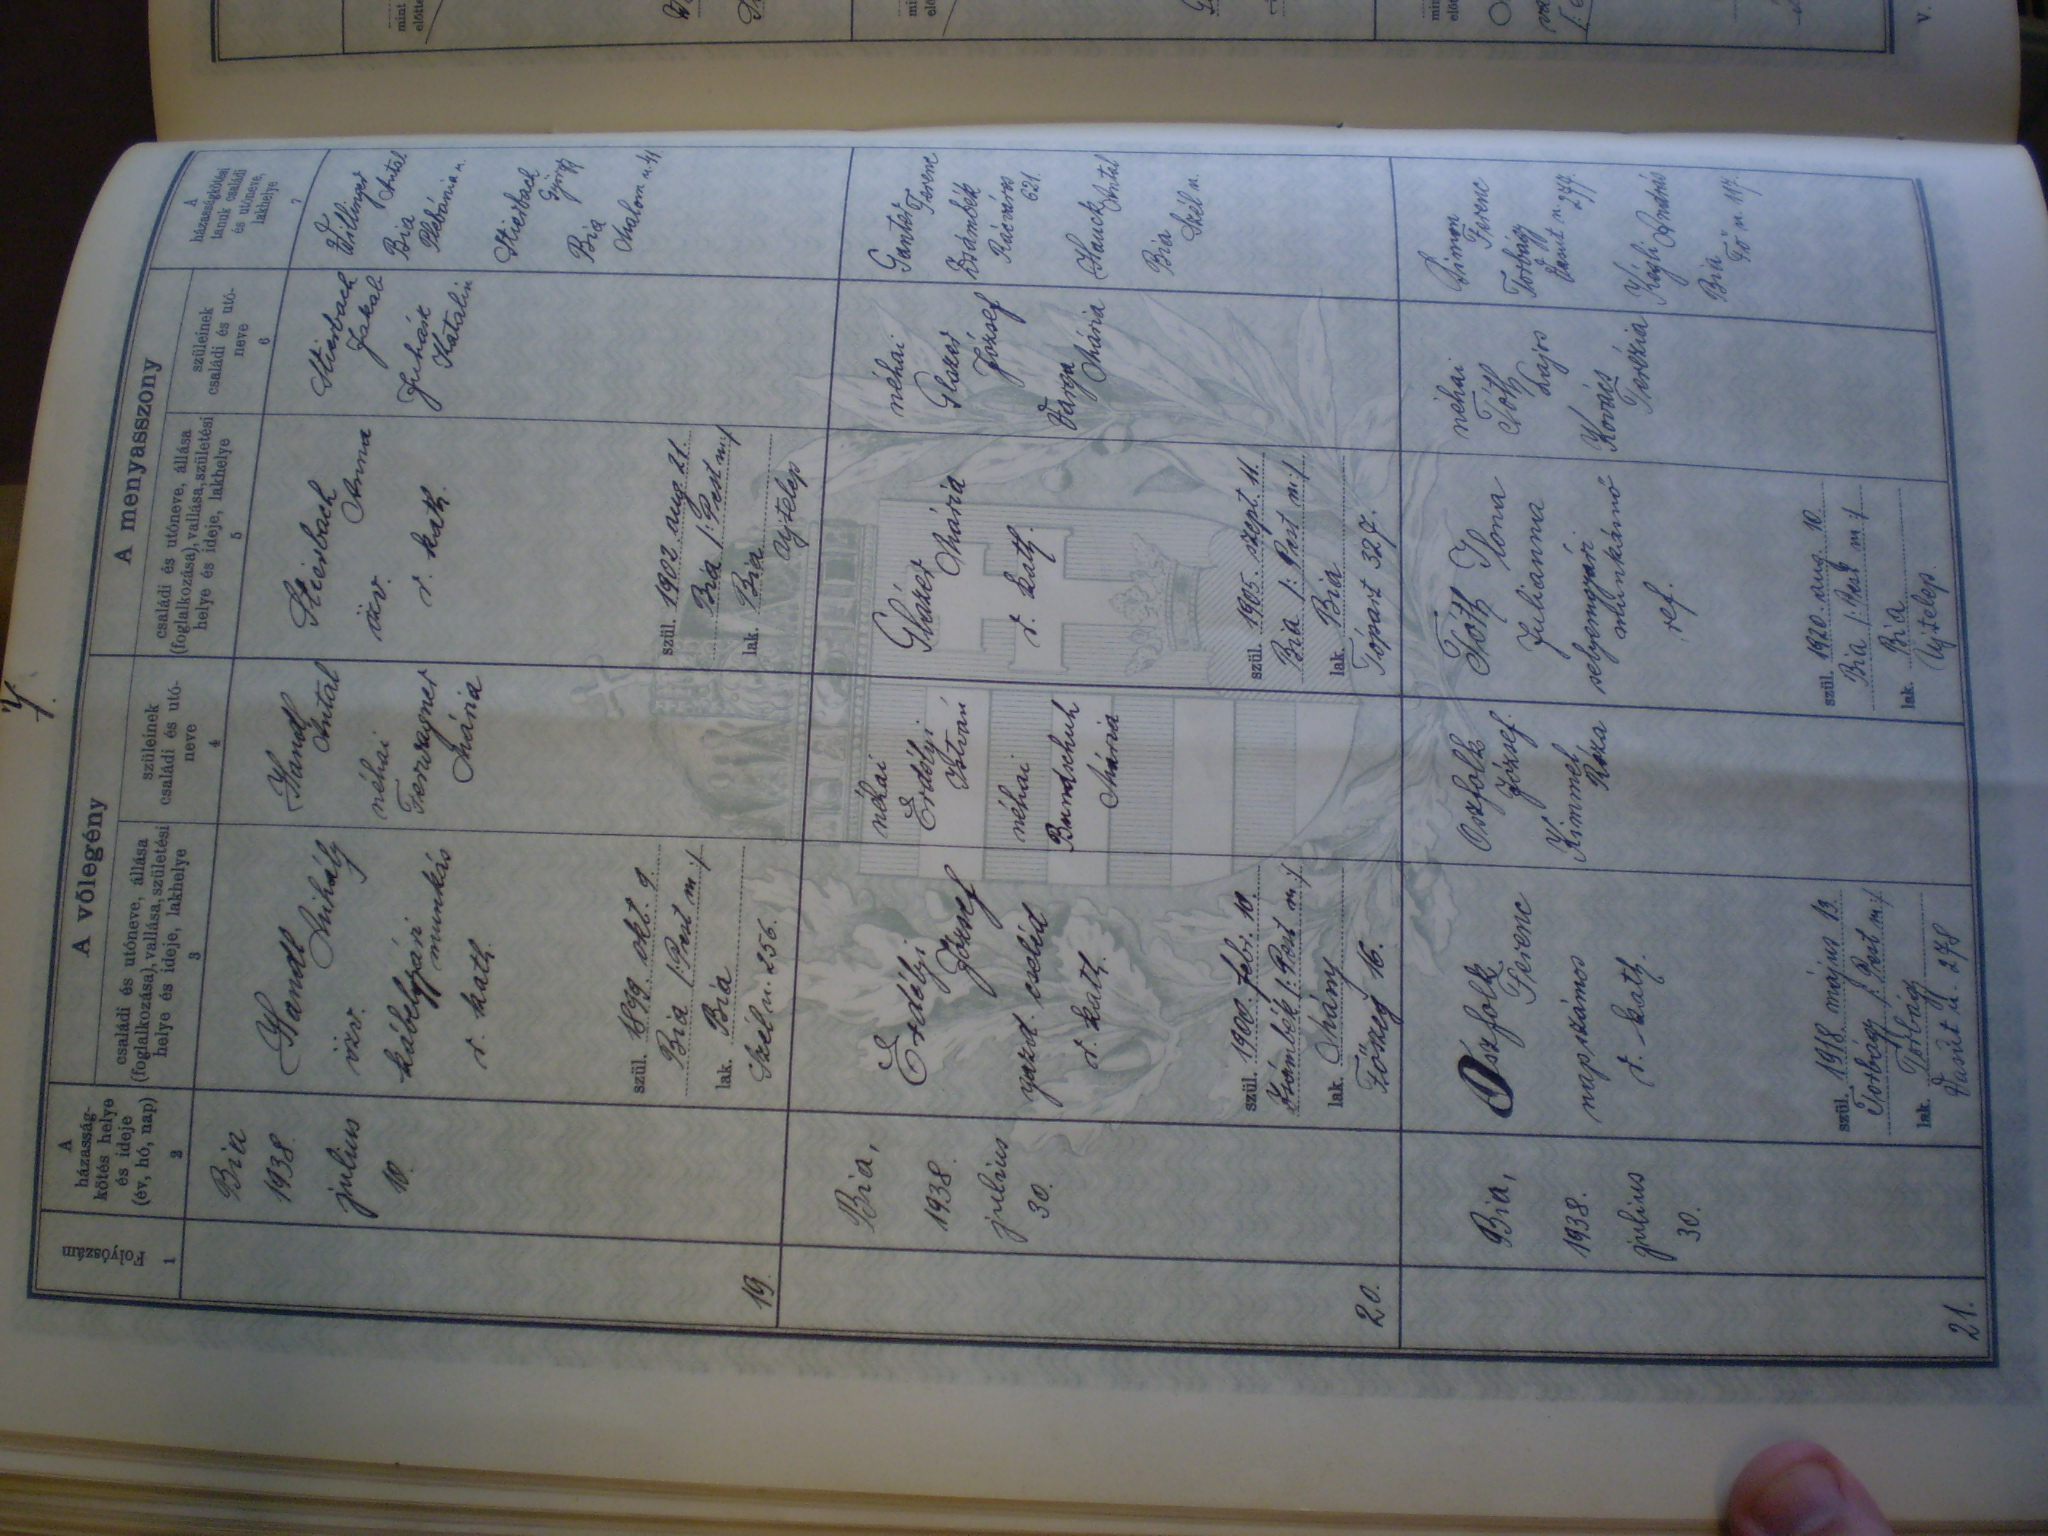 A vőlegény
A menyasszony
Folyószám
A
házasság-
kötés helye
és ideje
(év, hó, nap)
családi és utóneve, állása
(foglalkozása), vallása, születési
helye és ideje, lakhelye
szüleinek
családi és utó-
neve
családi és utóneve, állása
(foglalkozása), vallása, születési
helye és ideje, lakhelye
szüleinek
családi és utó-
neve
A
házasságkötési
tanuk családi
és utóneve,
lakhelye
1
2
3
4
5
6
7
19.
Bia
1938.
julius
10.
Handl
Mihály
özv.
kábelgyári
munkás
r. kath.
szül. 1899 okt. 9.
Bia /: Pest m :/
lak. Bia
Szél u. 256.
Handl
Antal
néhai
Ferzagner
Mária
Stierbach
Anna
özv.
r. kath.
szül. 1902 aug. 21.
Bia /: Pest m :/
lak. Bia
ujtelep
Stierbach
Jakab
Juhász
Katalin
Willinger
Antal
Bia
Plébánia u.
Stierbach
György
Bia
Malom u. 41
20.
Bia,
1938.
julius
30.
Erdélyi
József
gazd. cseléd
r. kath.
szül. 1900. febr. 10.
Zsámbék /: Pest m :/
lak. Mány
Főszeg 16.
néhai
Erdélyi
István
néhai
Bundschuh
Mária
Glázer
Mária
r. kath.
szül. 1905. szept. 11.
Bia /: Pest m :/
lak. Bia
Tópart 327.
néhai
Glazer
József
Varga
Mária
Ganter
Ferenc
Zsámbék
Rácváros
621.
Hauck
Antal
Bia
Szél u.
21.
Bia,
1938.
julius
30.
Oszfolk
Ferenc
napszámos
r. kath.
szül. 1918. május 13.
Torbágy /: Pest m :/
lak. Torbágy
Vasút u. 278
Oszfolk
József
Kimmel
Róza
Tóth Ilona
Julianna
selyemgyári
munkásnő
ref.
szül. 1920. aug. 10.
Bia /: Pest m :/
lak. Bia
Ujtelep.
néhai
Tóth
Lajos
Kovács
Terézia
Simon
Ferenc
Torbágy
Vasut u. 277.
Kégli András
Bia
Fő u. 117.